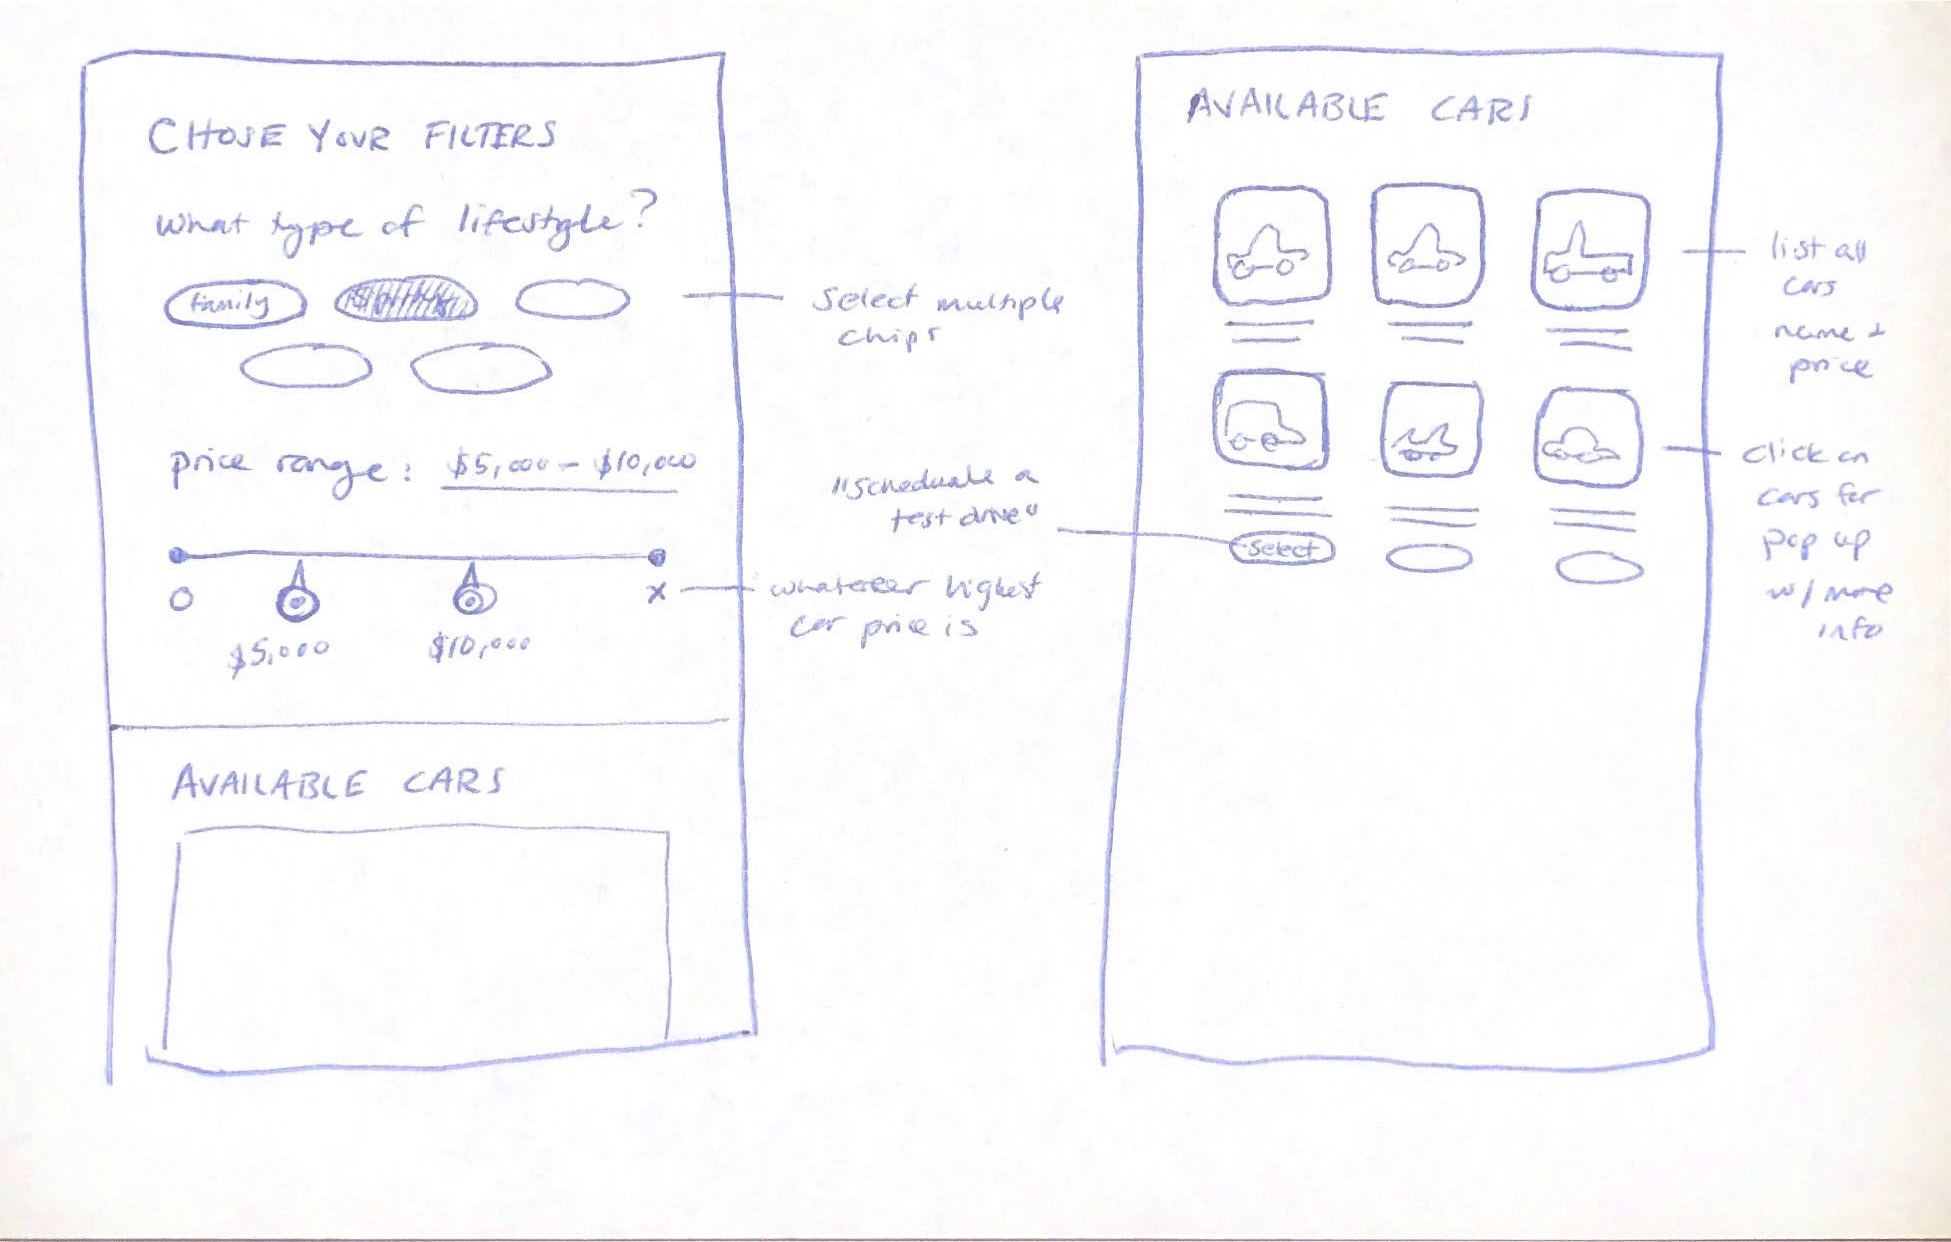 CHOSE YOUR FILTERS
what type of lifestyle?
family
select multiple
chips
price range: $5,000 - $10,000
O
$5,000
$10,000
x
whatever highest
car price is
AVAILABLE CARS
AVAILABLE CARS
list all
cars
name +
price
click on
cars for
pop up
w/ more
info
"schedule a
test drive"
select